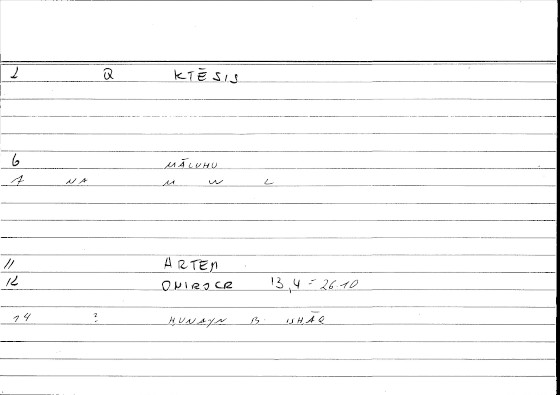 2 Q KTĒSIS
6 MĀLUHU
7 NA M W L
11 ARTEM
12 ONIROCR 13,4 = 26 10
14 ? HUNAYN B. ISHĀQ